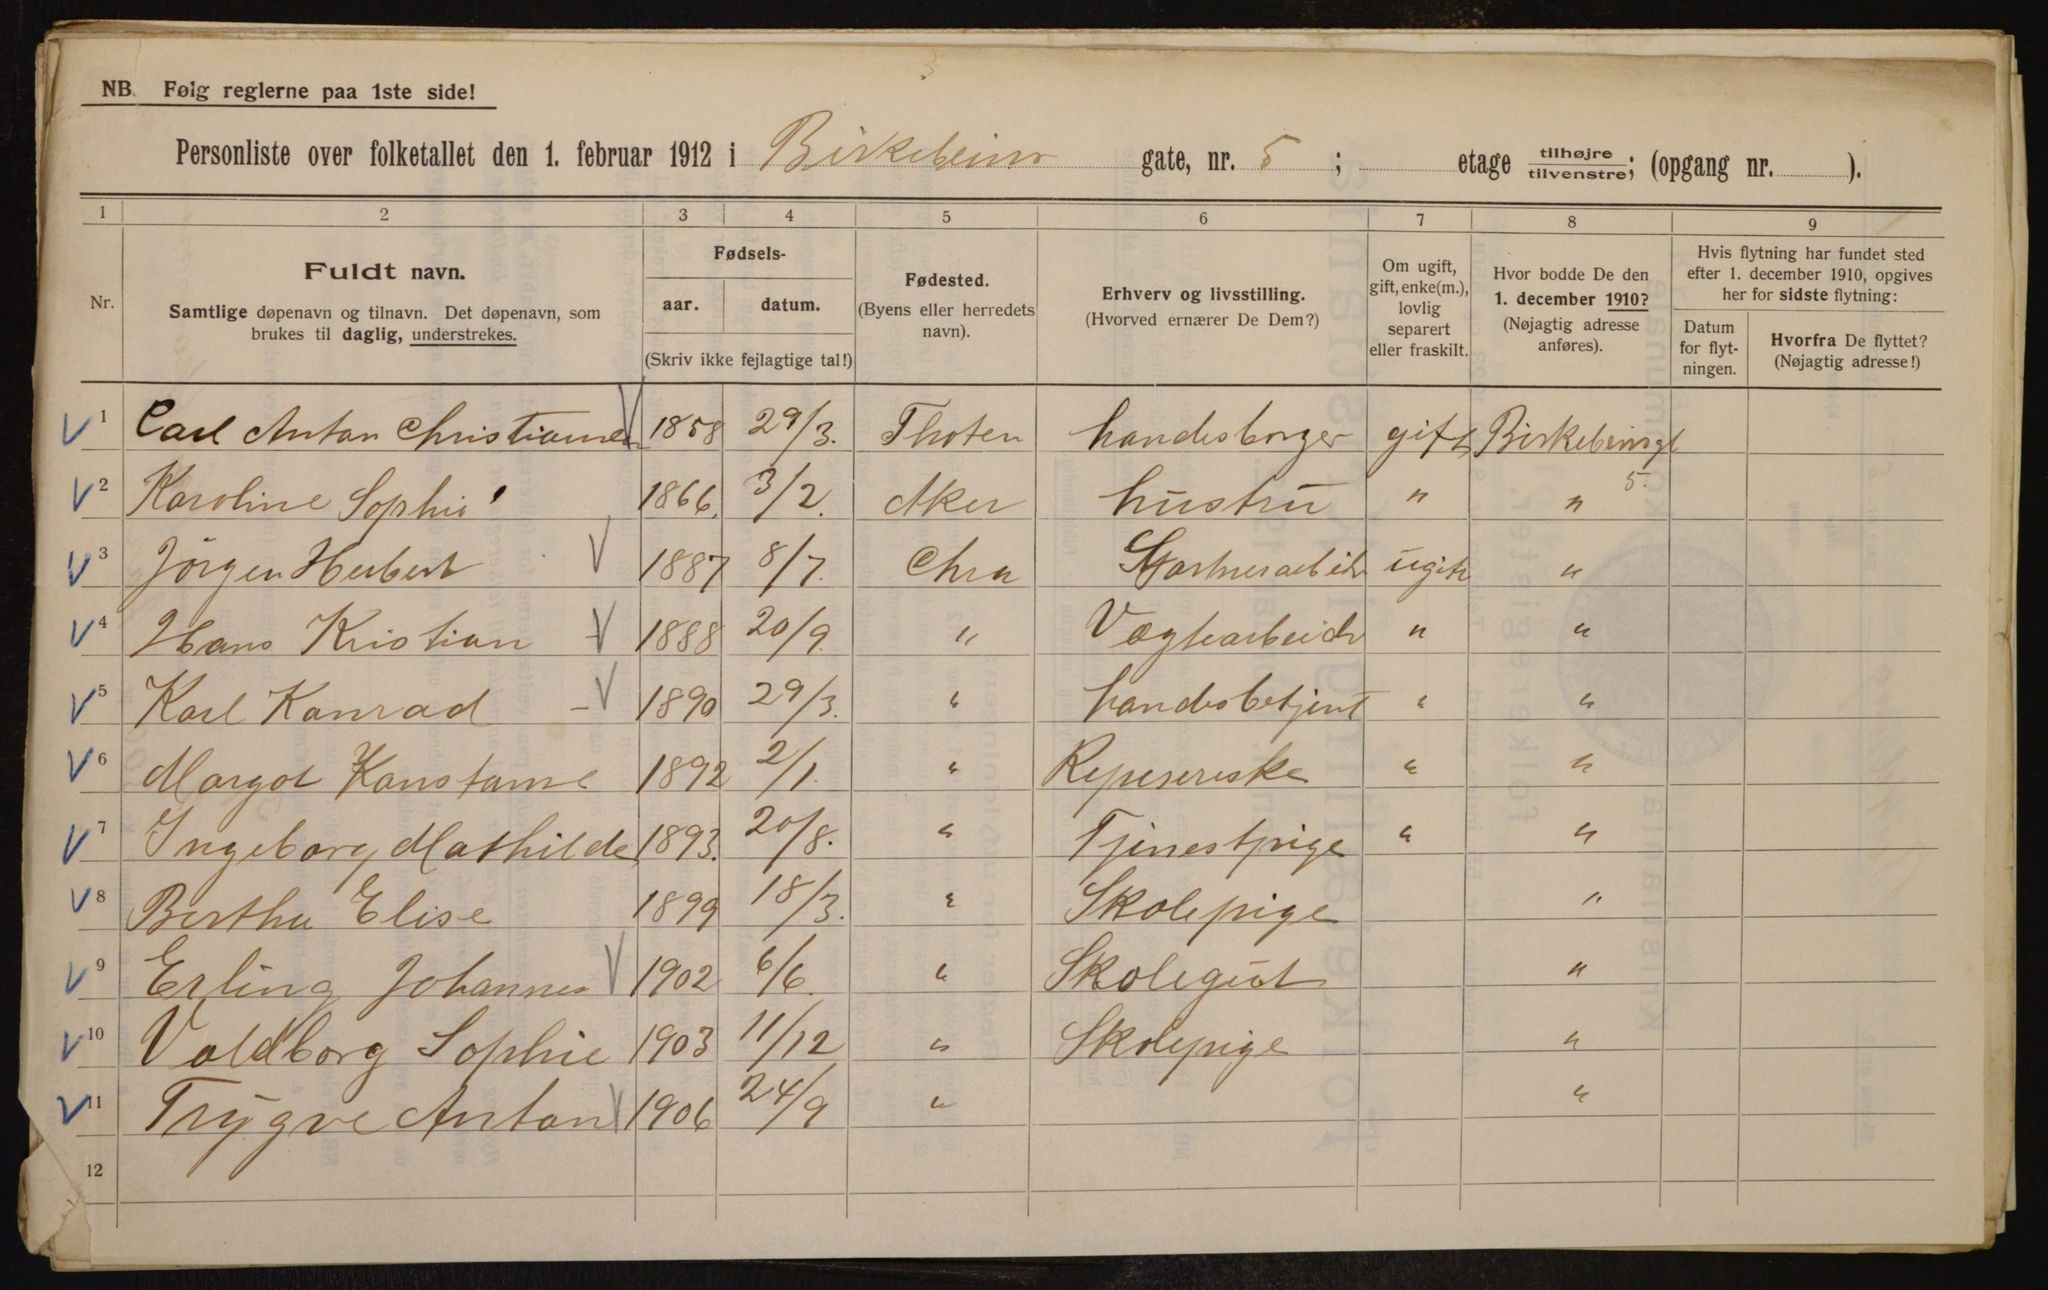 NB. Følg reglerne paa 1ste side!
Personliste over folketallet den 1. februar 1912 i Birkebeiner gate, nr. 5 ; etage tilhøjre / tilvenstre; (opgang nr. ).
1 2 3 4 5 6 7 8 9
Nr.
Fuldt navn.
Samtlige døpenavn og tilnavn. Det døpenavn, som
brukes til daglig, understrekes.
Fødsels-
aar. datum.
(Skriv ikke fejlagtige tal!)
Fødested.
(Byens eller herredets
navn).
Erhverv og livsstilling.
(Hvorved ernærer De Dem?)
Om ugift,
gift, enke(m.),
lovlig
separert
eller fraskilt.
Hvor bodde De den
1. december 1910?
(Nøjagtig adresse
anføres).
Hvis flytning har fundet sted
efter 1. december 1910, opgives
her for sidste flytning:
Datum
for flyt-
ningen.
Hvorfra De flyttet?
(Nøjagtig adresse!)
1 Carl Anton Christiansen 1858 29/3. Thoten handesborger gift Birkebeinsgt
2 Karoline Sophie 1866. 3/2. Aker hustru " " 5.
3 Jörgen Herbert 1887 8/7. Chra Gartnerarbeidr ugift "
4 Hans Kristian 1888 20/9. " Vægtearbeidr " "
5 Karl Konrad 1890 29/3. " handesbetjent " "
6 Margot Konstanse 1892 2/1. " " "
7 Ingeborg Mathilde 1893. 20/8. " Tjenestpige " "
8 Bertha Elise 1899 18/3. " Skolepige "
9 Erling Johannes 1902 6/6. " Skolegut "
10 Valdborg Sophie 1903 11/12 " Skolepige "
11 Trygve Anton 1906 24/9 " "
12